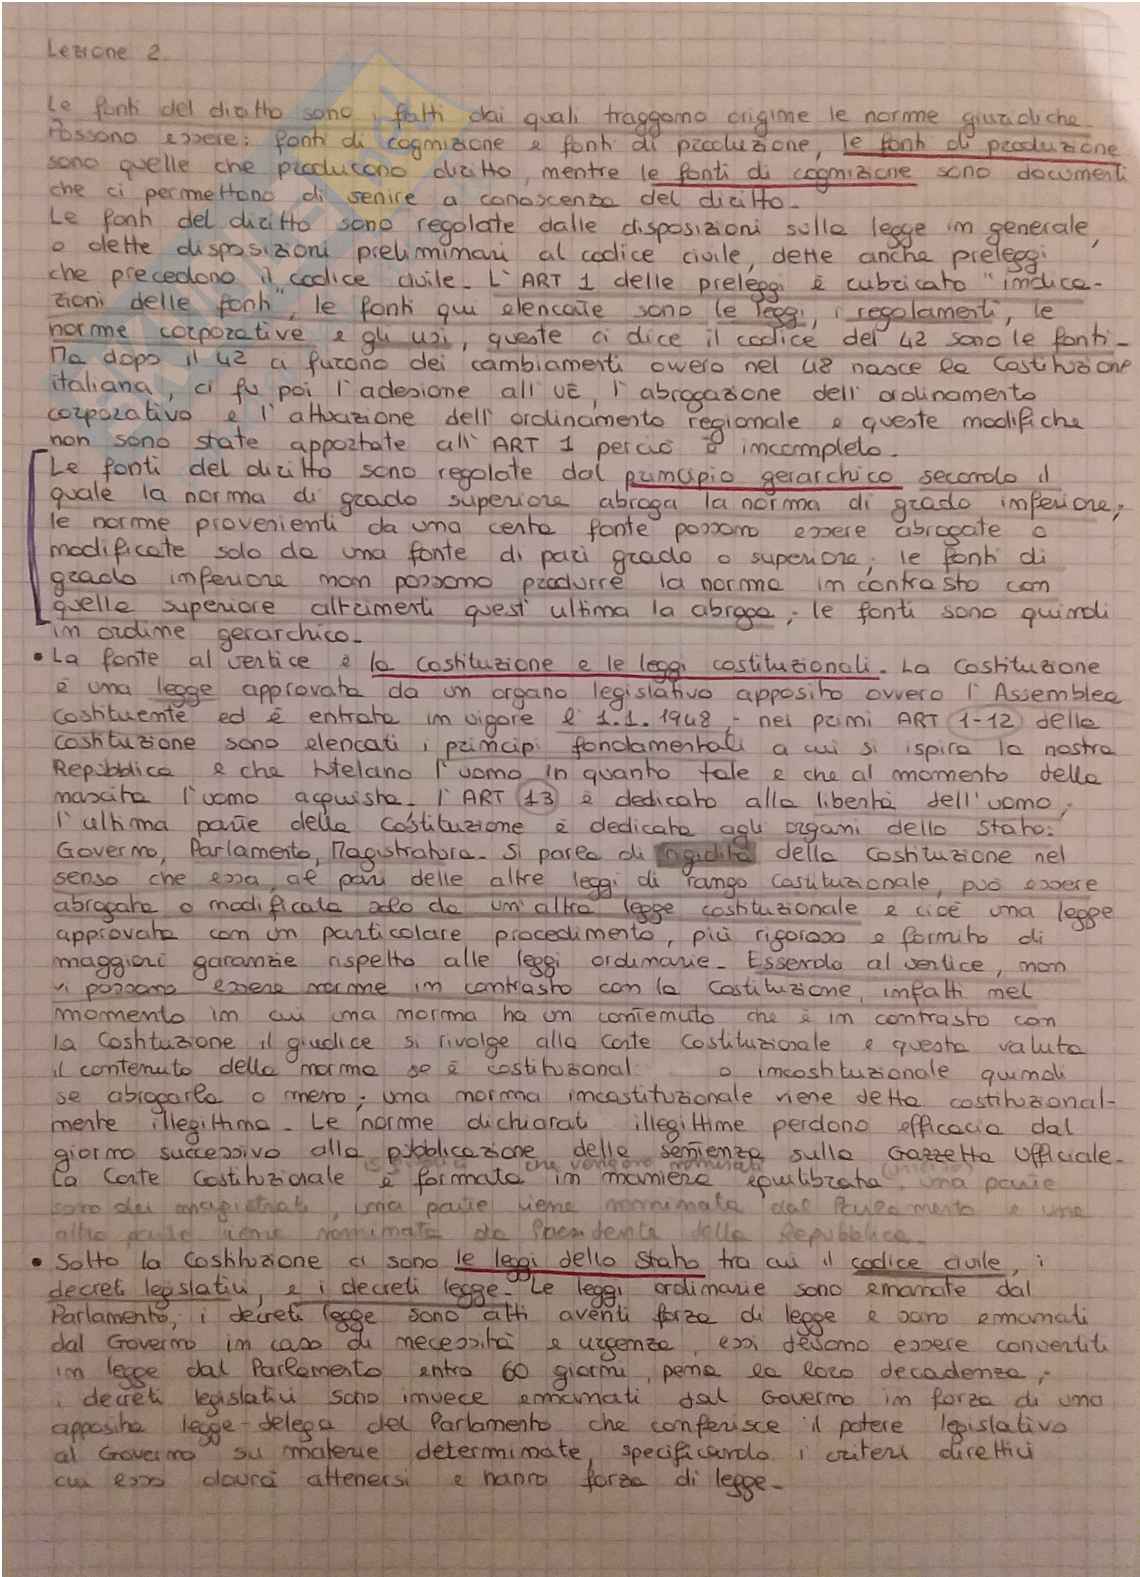 Lezione 2
Le fonti del diritto sono i fatti dai quali traggono origine le norme giuridiche.
Possono essere: fonti di cognizione e fonti di produzione, le fonti di produzione
sono quelle che producono diritto, mentre le fonti di cognizione sono documenti
che ci permettono di venire a conoscenza del diritto.
Le fonti del diritto sono regolate dalle disposizioni sulla legge in generale,
o dette disposizioni preliminari al codice civile, dette anche preleggi
che precedono il codice civile. L'ART 1 delle preleggi è rubricato "indica-
zioni delle fonti", le fonti qui elencate sono le leggi, i regolamenti, le
norme corporative e gli usi, queste ci dice il codice del 42 sono le fonti.
Ma dopo il 42 ci furono dei cambiamenti ovvero nel 48 nasce la Costituzione
italiana, ci fu poi l'adesione all'UE, l'abrogazione dell'ordinamento
corporativo e l'attuazione dell'ordinamento regionale e queste modifiche
non sono state apportate all'ART 1 perciò è incompleto.
Le fonti del diritto sono regolate dal principio gerarchico secondo il
quale la norma di grado superiore abroga la norma di grado inferiore;
le norme provenienti da una certa fonte possono essere abrogate o
modificate solo da una fonte di pari grado o superiore; le fonti di
grado inferiore non possono produrre la norma in contrasto con
quella superiore altrimenti quest'ultima la abroga; le fonti sono quindi
in ordine gerarchico.
• La fonte al vertice è la costituzione e le leggi costituzionali. La Costituzione
è una legge approvata da un organo legislativo apposito ovvero l'Assemblea
Costituente ed è entrata in vigore l'1.1.1948; nei primi ART 1-12 della
Costituzione sono elencati i principi fondamentali a cui si ispira la nostra
Repubblica e che tutelano l'uomo in quanto tale e che al momento della
nascita l'uomo acquista. l'ART 13 è dedicato alla libertà dell'uomo;
l'ultima parte della Costituzione è dedicata agli organi dello Stato:
Governo, Parlamento, Magistratura. Si parla di rigidità della Costituzione nel
senso che essa, al pari delle altre leggi di rango costituzionale, può essere
abrogata o modificata solo da un'altra legge costituzionale e cioè una legge
approvata con un particolare procedimento, più rigoroso e fornito di
maggiori garanzie rispetto alle leggi ordinarie. Essendo al vertice, non
vi possono essere norme in contrasto con la Costituzione, infatti nel
momento in cui una norma ha un contenuto che è in contrasto con
la Costituzione il giudice si rivolge alla Corte Costituzionale e questa valuta
il contenuto della norma se è costituzional o incostituzionale quindi
se abrogarla o meno; una norma incostituzionale viene detta costituzional-
mente illegittima. Le norme dichiarati illegittime perdono efficacia dal
giorno successivo alla pubblicazione della sentenza sulla Gazzetta Ufficiale.
che vengono nominati
La Corte Costituzionale è formata in maniera equilibrata, una parte
sono dei magistrati, una parte viene nominata dal Parlamento e una
altra parte viene nominata da Presidente della Repubblica.
• Sotto la Costituzione ci sono le leggi dello Stato tra cui il codice civile, i
decreti legislativi, e i decreti legge. Le leggi ordinarie sono emanate dal
Parlamento; i decreti legge sono atti aventi forza di legge e sono emanati
dal Governo in caso di necessità e urgenza, essi devono essere convertiti
in legge dal Parlamento entro 60 giorni, pena la loro decadenza;
i decreti legislativi sono invece emanati dal Governo in forza di una
apposita legge-delega del Parlamento che conferisce il potere legislativo
al Governo su materie determinate, specificando i criteri direttivi
cui esso dovrà attenersi e hanno forza di legge.